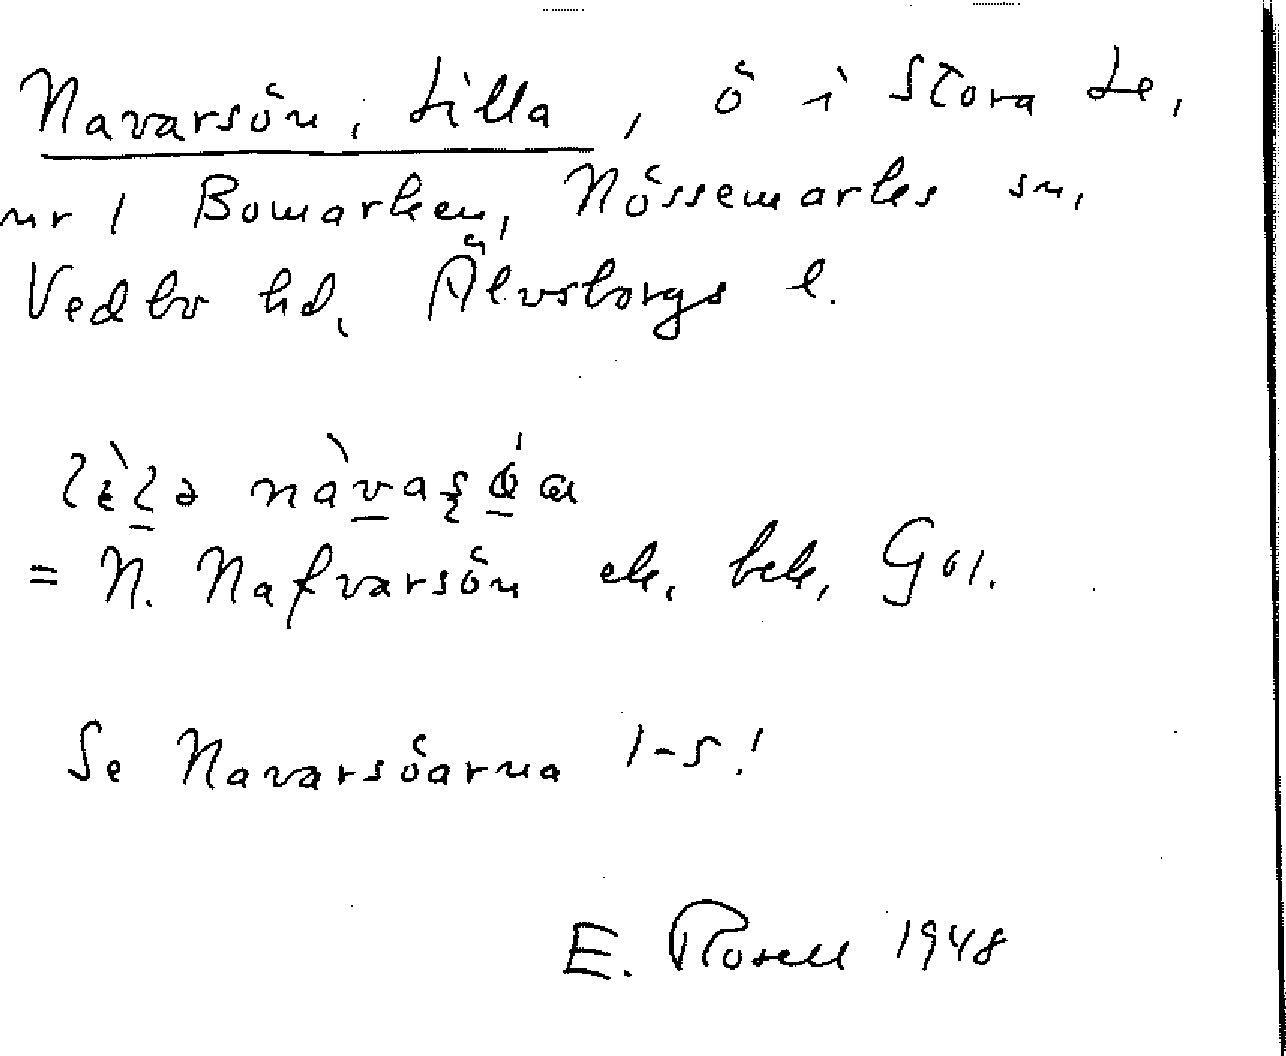 Navarsön, Lilla, ö i Stora Le,
nr 1 Bomarken, Nössemarks sn,
Vedbo hd, Älvsborgs l.
= N. Nafvarsön ek. bek, G 61.
Se Navarsöarna 1-5!
E. Rosell 1948